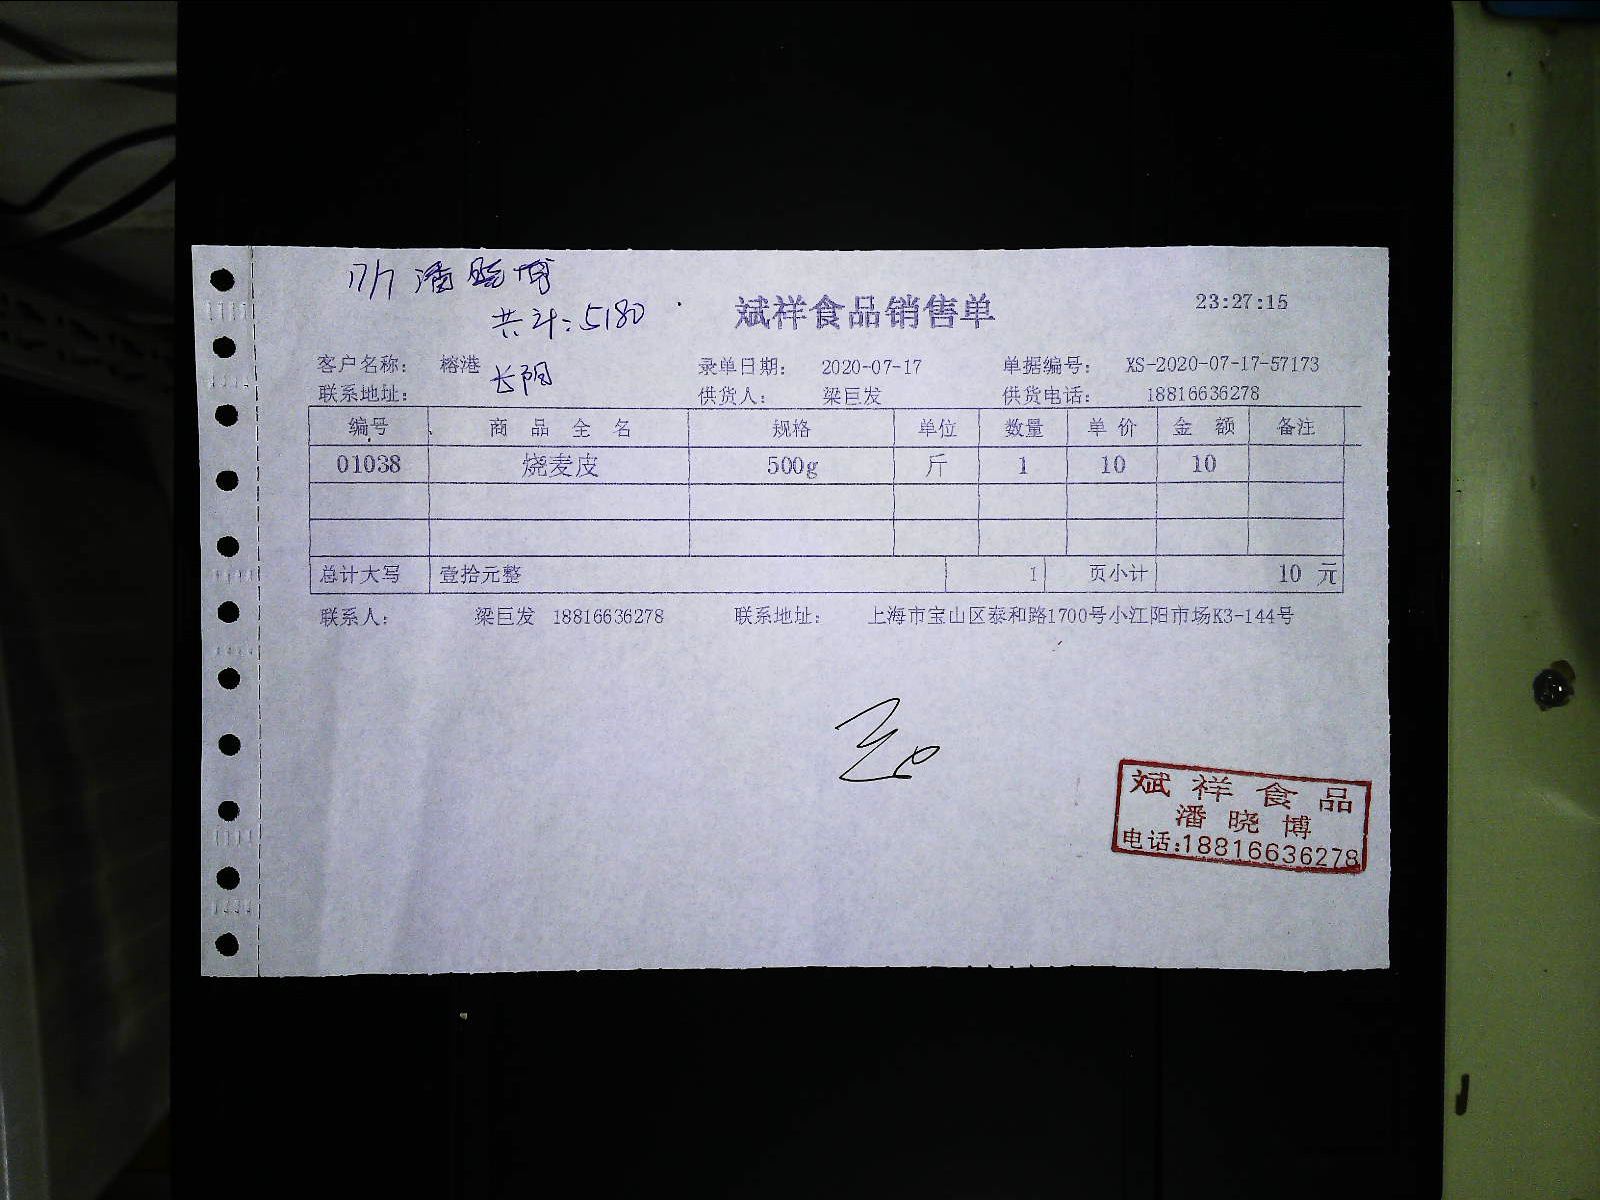 17/7 潘晓博
共计:5180
斌祥食品销售单
23:27:15
客户名称: 榕港 长阳 录单日期: 2020-07-17 单据编号: XS-2020-07-17-57173
联系地址: 供货人: 梁巨发 供货电话: 18816636278
编号 商品全名 规格 单位 数量 单价 金额 备注
01038 烧麦皮 500g 斤 1 10 10
总计大写 壹拾元整 1 页小计 10 元
联系人: 梁巨发 18816636278 联系地址: 上海市宝山区泰和路1700号小江阳市场K3-144号
斌祥食品
潘晓博
电话:18816636278